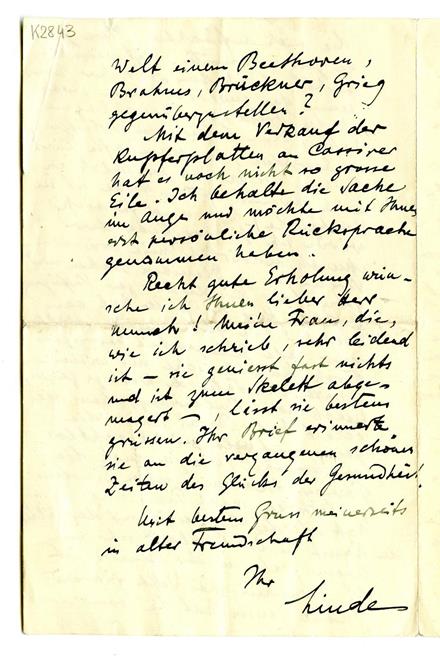 K2843
Welt einem Beethoven,
Brahms, Brückner, Grieg
gegenüberzustellen?
Mit dem Verkauf der
Kupferplatten an Cassirer
hat es noch nicht so grosse
Eile. Ich behalte die Sache
im Auge und möchte mit Ihnen
erst persönliche Rücksprache
genommen haben.
Recht gute Erholung wün-
sche ich Ihnen lieber Herr
Munch! Meine Frau, die,
wie ich schrieb, sehr leidend
ist – sie geniesst fast nichts
und ist zum Skelett abge-
magert –, lässt sie bestens
grüssen. Ihr Brief erinnerte
sie an die vergangenen schönen
Zeiten des Glücks der Gesundheit.
Mit bestem Gruss meinerseits
in alter Freundschaft
Ihr
Linde